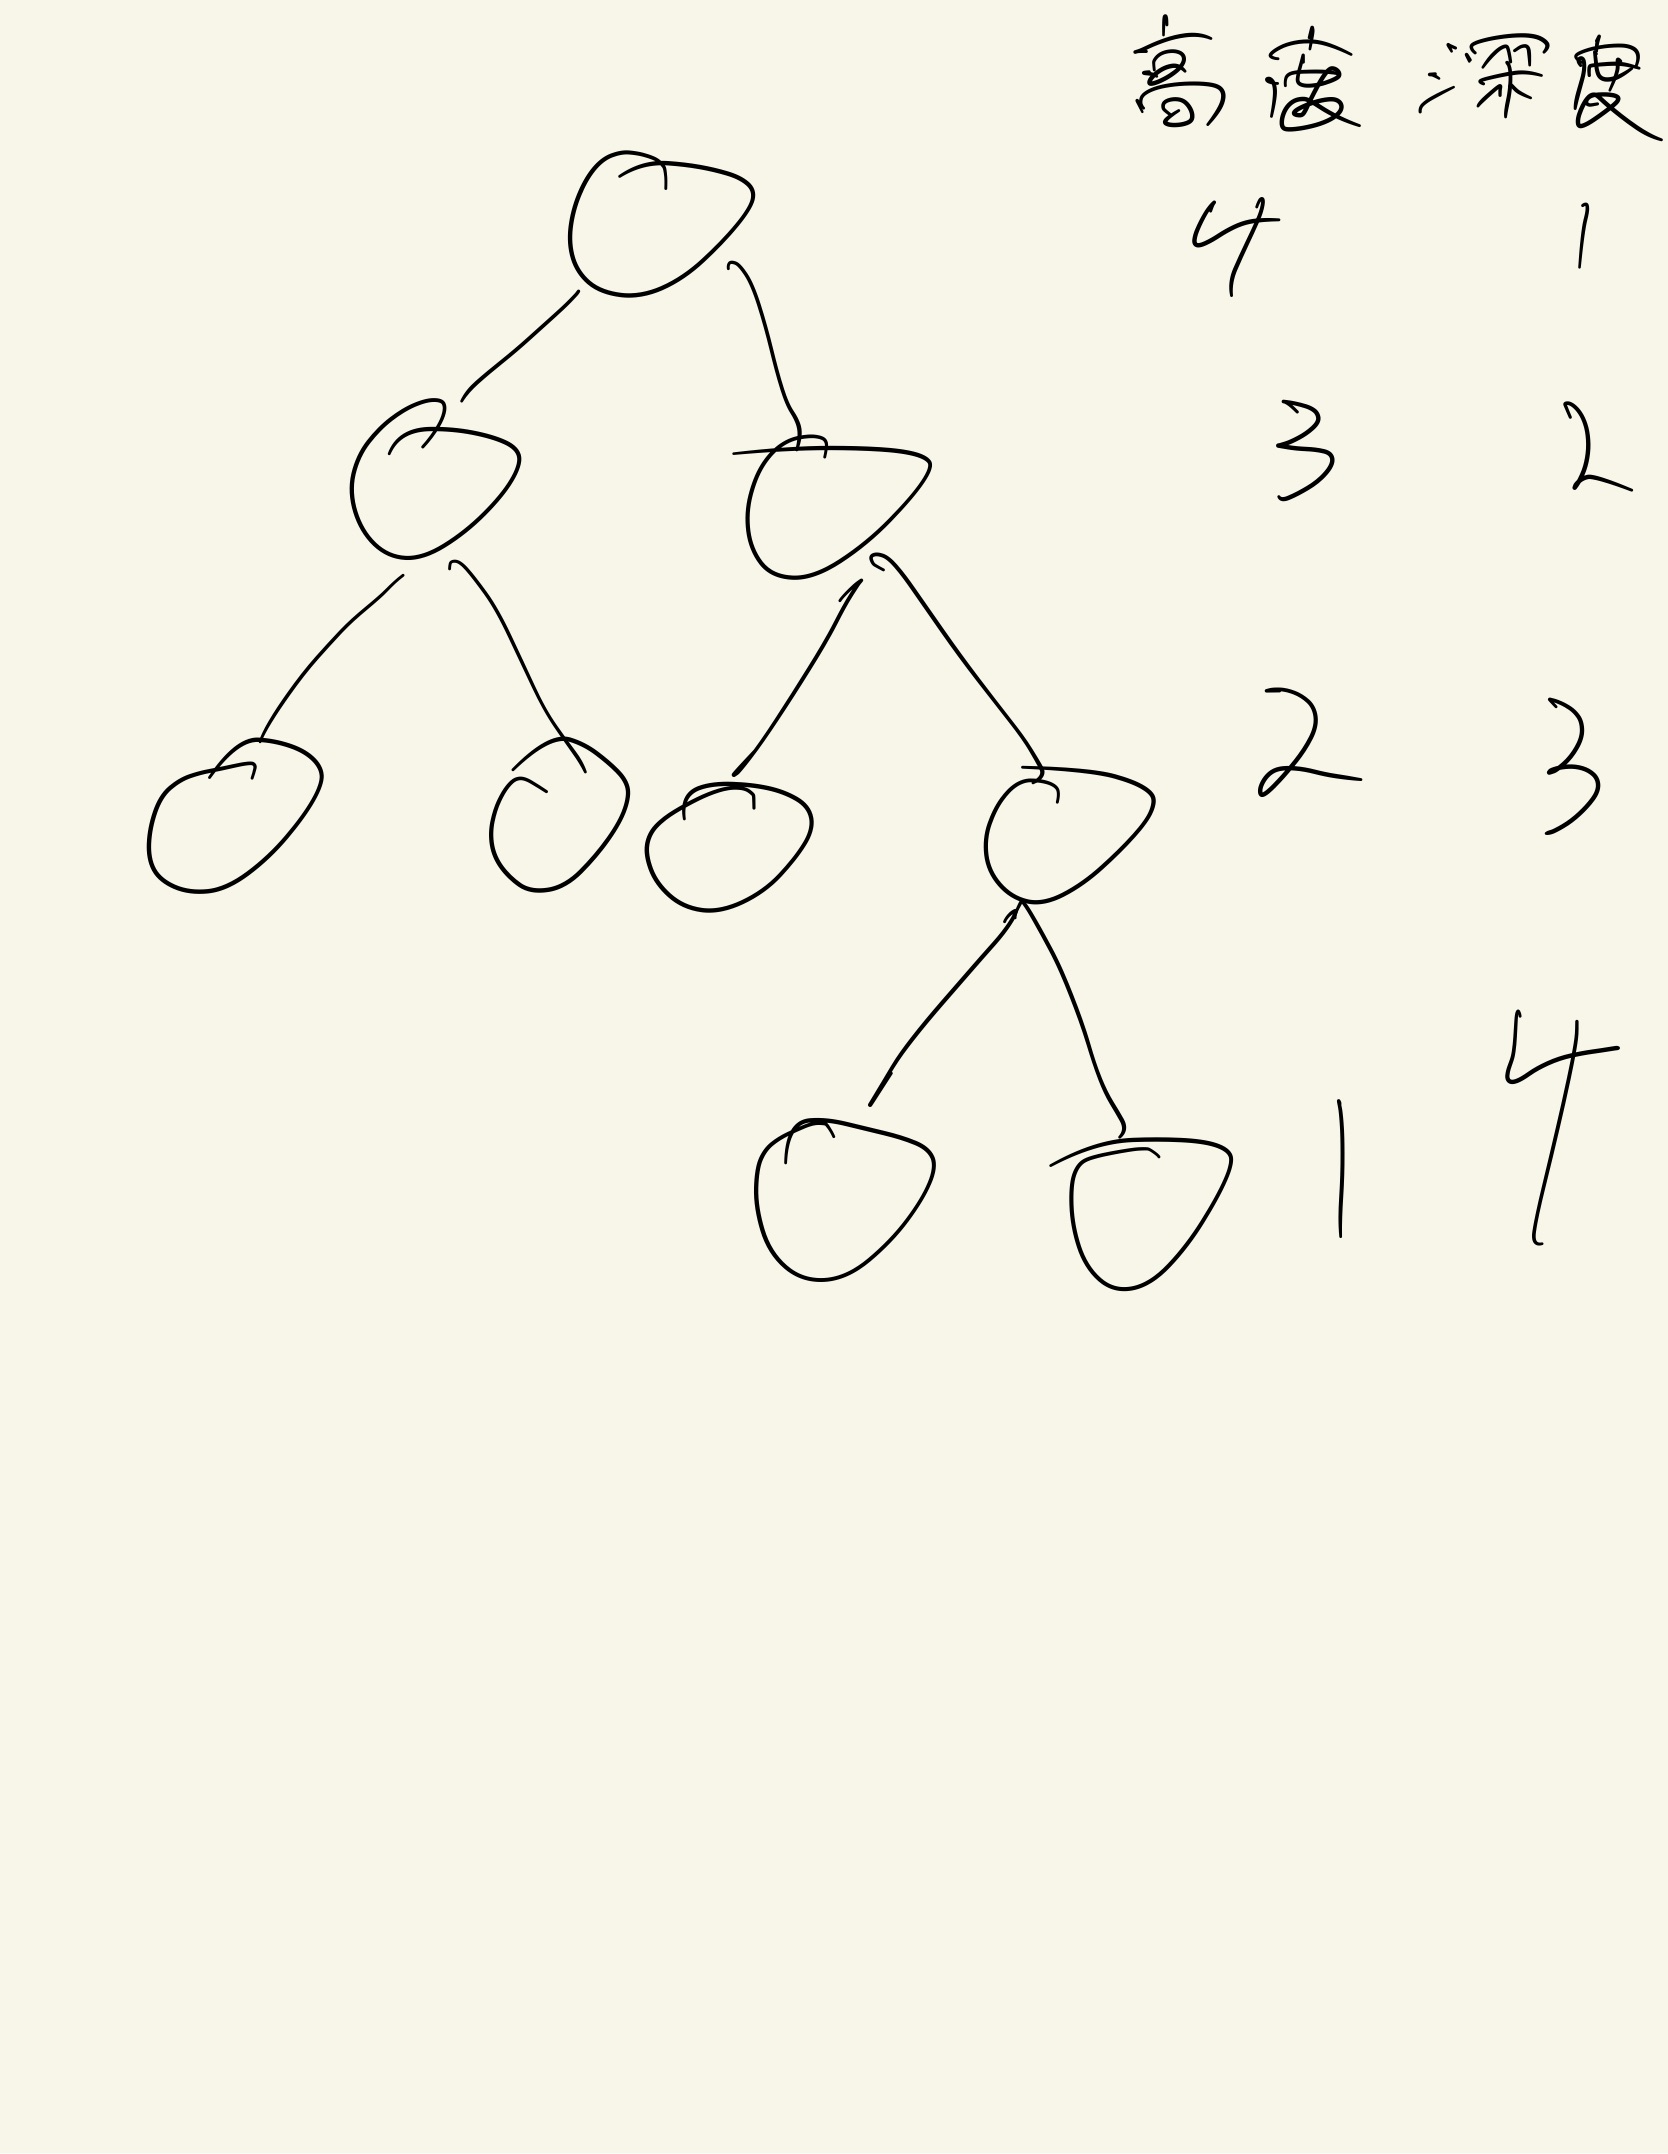 高度 深度
4 1
3 2
2 3
1 4